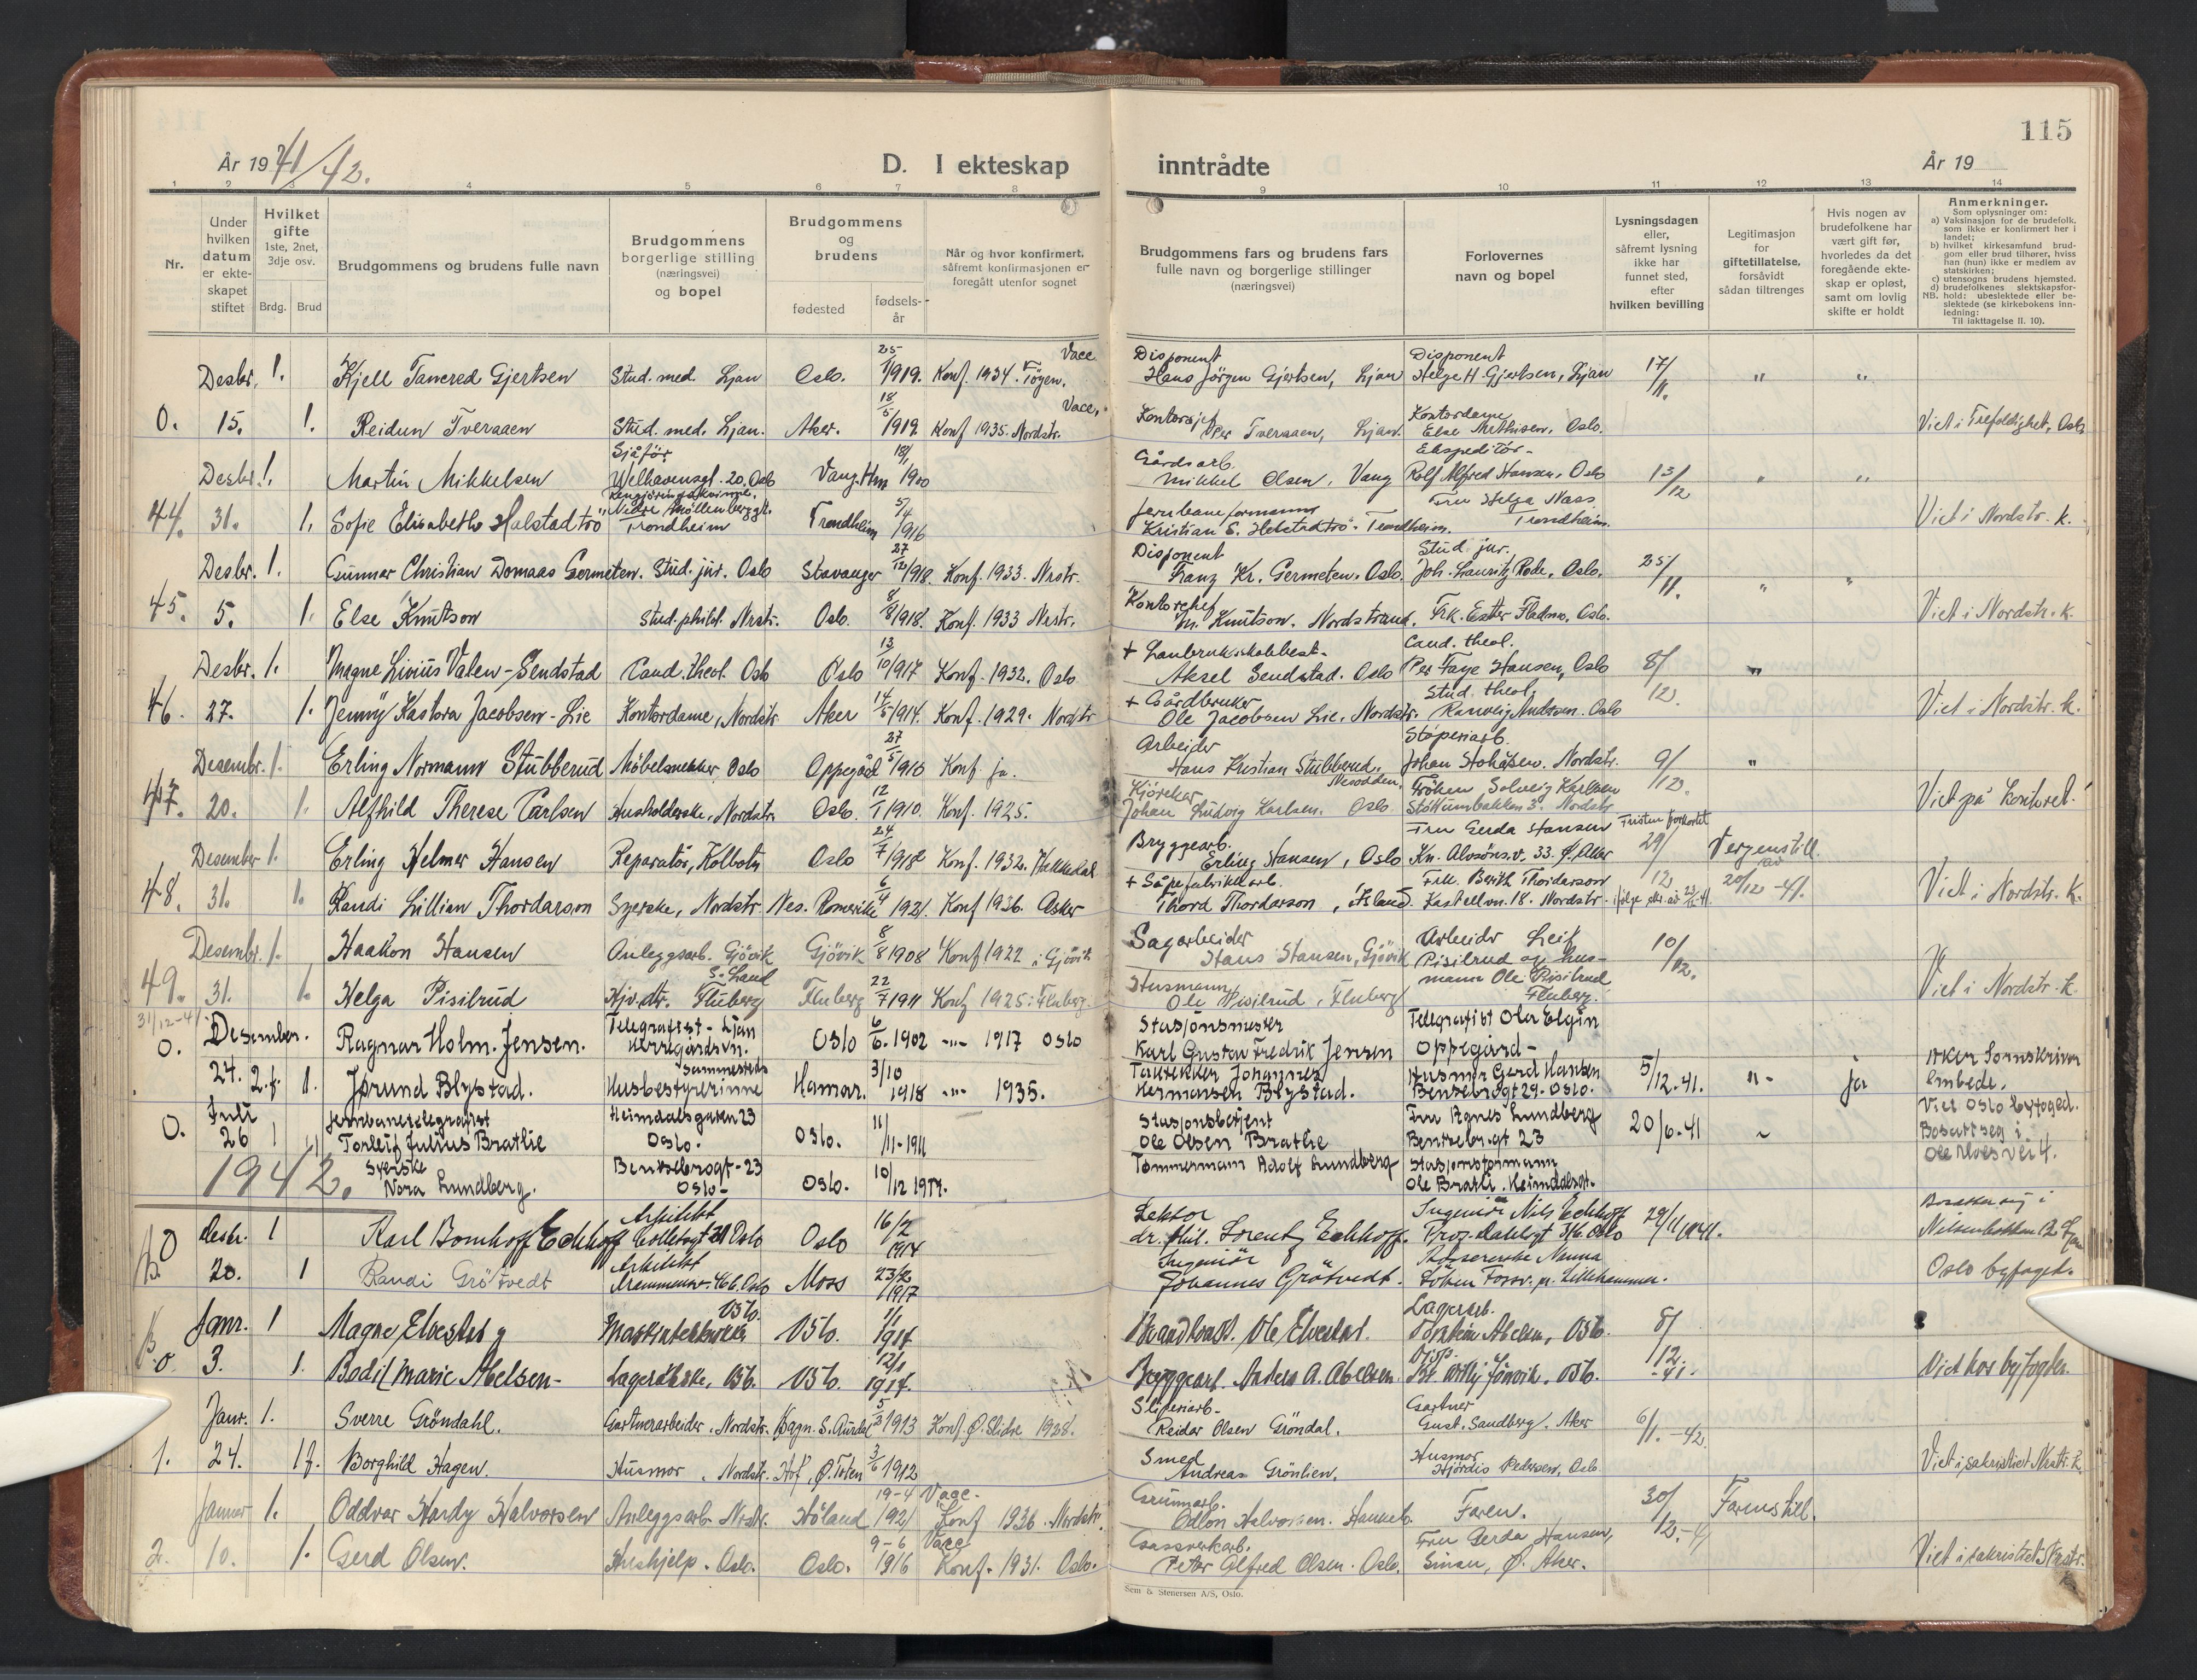 115
År 1941/42.
D. I ekteskap
inntrådte
År 19
1 2 3 4 5 6 7 8 9 10 11 12 13 14
Nr.
Under hvilken datum er ekteskapet stiftet
Hvilket gifte
1ste, 2net, 3dje osv.
Brdg. Brud
Brudgommens og brudens fulle navn
Brudgommens borgerlige stilling (næringsvei) og bopel
Brudgommens og brudens
fødested
fødsels-år
Når og hvor konfirmert, såfremt konfirmasjonen er foregått utenfor sognet
Brudgommens fars og brudens fars fulle navn og borgerlige stillinger (næringsvei)
Forlovernes navn og bopel
Lysningsdagen eller, såfremt lysning ikke har funnet sted, efter hvilken bevilling
Legitimasjon for giftetillatelse, forsåvidt sådan tiltrenges
Hvis nogen av brudefolkene har vært gift før, hvorledes da det foregående ekteskap er opløst, samt om lovlig skifte er holdt
Anmerkninger.
Som oplysninger om:
a) Vaksinasjon for de brudefolk, som ikke er konfirmert her i landet;
b) hvilket kirkesamfund brudgom eller brud tilhører, hviss han (hun) ikke er medlem av statskirken;
c) utensogns brudens hjemsted.
d) brudefolkenes slektskapsforhold: ubeslektede eller beslektede (se kirkebokens innledning;
NB. Til iakttagelse II. 10).
Desbr. 1. Kjell Tancred Gjertsen Stud. med. Ljan Oslo. 25/1 1919. Vacc. Konf. 1934. Tøyen. Disponent Hans Jörgen Gjertsen, Ljan Disponent Helge H. Gjertsen, Ljan 17/11. " "
0. 15. 1. Reidun Tveraaen Stud. med. Ljan. Aker. 18/5 1919 Vacc. Konf 1935. Nordstr. Kontorsjef Per Tveraaen, Ljan. Kontordame Else Mathisen, Oslo. Viet i Trefoldighet, Oslo
Desbr. 1. Martin Mikkelsen Sjåför Welhavensgt. 20. Oslo Vang. Hm 18/1 1900 Gårdsarb. Mikkel Olsen, Vang Ekspeditör Rolf Alfred Hansen, Oslo 13/12 " "
44. 31. 1. Sofie Elisabeth Halstadtrö Rengjöringskvinne. Nidre Möllenberggt. Trondheim Trondheim 5/4 1916 Jernbaneformann Kristian E. Halstadtrö. Trondheim. Fru Helga Nass Trondheim. Viet i Nordstr. k.
Desbr. 1. Gunnar Christian Domaas Germeten. Stud. jur. Oslo Stavanger 27/12 1918. Konf. 1933. Nrstr. Disponent Franz Kr. Germeten. Oslo. Stud. jur. Joh. Lauritz Rode, Oslo. 25/11. " "
45. 5. 1. Else Knutson Stud. philol. Nrstr. Oslo. 8/9 1918. Konf. 1933 Nrstr. Kontorchef M. Knutson. Nordstrand. Frk. Ester Fladmo, Oslo. Viet i Nordstr. k.
Desbr. 1. Magne Livius Valen-Sendstad Cand. theol. Oslo Oslo 13/10 1917 Konf. 1932. Oslo + Aksel Sendstad. Oslo Cand. theol. Per Faye Hansen, Oslo 8/12. "
46. 27. 1. Jenny Kastora Jacobsen-Lie Kontordame, Nordstr. Aker 14/5 1914. Konf. 1929. Nordstr + Gårdbruker Ole Jacobsen Lie, Nordstr. Stud. theol. Oslo Viet i Nordstr. k.
Desembr. 1. Erling Normann Stubberud Möbelsnekker, Oslo Oppegård 27/5 1910 Konf. ja. Arbeider Hans Kristian Stubberud. Nesodden Støperiarb. Nordstr. 9/12. "
47. 20. 1. Alfhild Therese Carlsen Husholderske, Nordstr. Oslo. 12/1 1910. Konf. 1925. Kjörekar Johan Ludvig Karlsen. Oslo Fröken Solveig Karlsen 3. Nordstr. Viet på kontoret.
Desember 1. Erling Helmer Hansen Reparatör, Kolbotn Oslo 24/7 1918 Konf. 1932. Hakkadal Bryggearb. Erling Hansen, Oslo Fru Gerda Hansen Kn. Alvsöns.v. 33. Ø. Aker Fristen forkortet 29/12 Vergenstill. av 20/12 -41.
48. 31. 1. Randi Lillian Thordarson Syerske, Nordstr. Nes. Romerike 6/4 1921. Konf 1936. Asker + Såpefabrikkarb. Thord Thordarson, Island. Frk. Berith Thordarson Kastellvn. 18. Nordstr. Viet i Nordstr. k.
Desembr. 1. Haakon Hansen Anleggsarb. Gjövik Gjövik 8/8 1908 Konf 1922 i Gjövik Sagarbeider Hans Hansen, Gjövik Arbeider Leif Pisilrud og hus- 10/12.
49. 31. 1. Helga Pisilrud S. Land Flüberg Fluberg 22/7 1911 Konf 1925 i Fluberg. Husmann Ole Pisilrud, Fluberg mann Ole Pisilrud Fluberg. Viet i Nordstr. k.
31/12-41
0. Desember. Ragnar Holm-Jensen. Telegrafist - Ljan Herregårdsvn. Oslo 6/6. 1902 -"- 1917 Oslo Stasjonsmester Karl Gustav Fredrik Jensen Telegrafist Ola Elgin Oppegård-
24. 2.f. 1. Jørund Blystad. sammesteds Husbestyrerinne Hamar. 3/10 1918 -"- 1935. Taktekker Johannes Hermansen Blystad. Husmor Gerd Hansen Bentsebrogt 29. Oslo. 5/12-41. "- ja Aker Sornskriver Embede.
0. Juli 26 1 Jernbanetelegrafist Torleif Julius Brathe Heimdalsgaten 23 Oslo. Oslo. 11/11-1911 Stasjonsbetjent Ole Olsen Brathe Fru Agnes Lundberg Bentsebr.gt 23 20/6-41 Viet Oslo byfoged. Bosatt seg i Ole Moes vei 4.
1942. Syerske Nora Lundberg. Bentsebrogt-23 Oslo- Oslo. 10/12 Tømmermann Adolf Lundberg Stasjonsformann Ole Brathe. Heimdalsgt.
Desbr. 1 Karl Bomhoff Eckhoff Arkitekt Oslo Oslo 16/2 1914 Lektor dr. phil. Lorentz Eckhoff. Ingeniör Nils Eckhoff Oslo 29/11 1941.
20. 1 Randi Grötvedt Arkitekt Oslo Moss 23/2 1917 Ingeniör Johannes Grötvedt. Lillehammer. Oslo byfoged.
Janr. 1 Magne Elvestad Oslo. Oslo. 11/1 Ole Elvestad. Lagerarb. Abelsen, Oslo. 8/12. -41.
B.o. 3. 1. Bodil Marie Abelsen- Oslo. Oslo. 12/1 Byggearb. Anders A. Abelsen Disp. Oslo. Viet hos byfogden.
Janr. 1. Sverre Gröndahl. Gartnerarbeider. Nordstr. Bagn. S. Aurdal 1913 Konf. Ø. Slidre 1928. Sliperiarb- Reidar Olsen Gröndal. Gartner Gust. Sandberg. Aker 6/1.-42.
1. 24. 1 f. Borghild Hagen. Husmor, Nordstr. Hof, Ø. Toten 3/6 1912 Smed Andreas Grönlien. Husmor Hjördis Pedersen, Oslo Viet i sakristiet Nrstr. k.
Januar 1. Oddvar Hardy Halvorsen Anleggsarb. Nrstr. Höland 19-4 1921 Vacc. Konf 1936. Nordstr. Odlon Halvorsen. Faren. 30/12.-41 Farens till.
2. 10. 1. Gerd Olsen. Hushjelp. Oslo. Oslo. 9-6 1916 Vacc Konf. 1931. Oslo. Gassverkarb. Peter Alfred Olsen. Oslo. Fru Gerda Hansen, Sinsen, Ø. Aker. Viet i sakristiet Nrstr.
Sem & Stenersen A/S, Oslo.